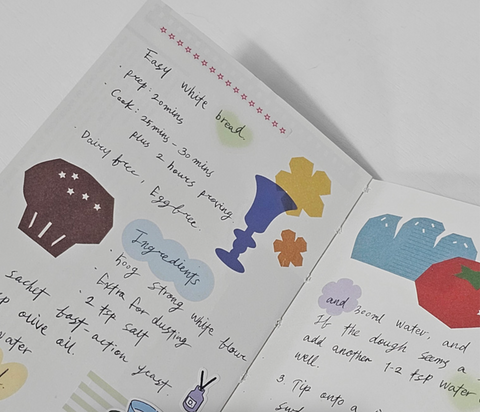 Easy White bread.
· prep: 20mins
· Cook: 25mins - 30mins
plus 2 hours proving
· Dairy free, Eggfree.
Ingredients
· 500g strong white flour
· Extra for dusting
· 2 tsp salt
sachet fast-action yeast.
olive oil.
water
and 300ml water, and
If the dough seems a
add another 1-2 tsp water
well.
3. Tip onto a